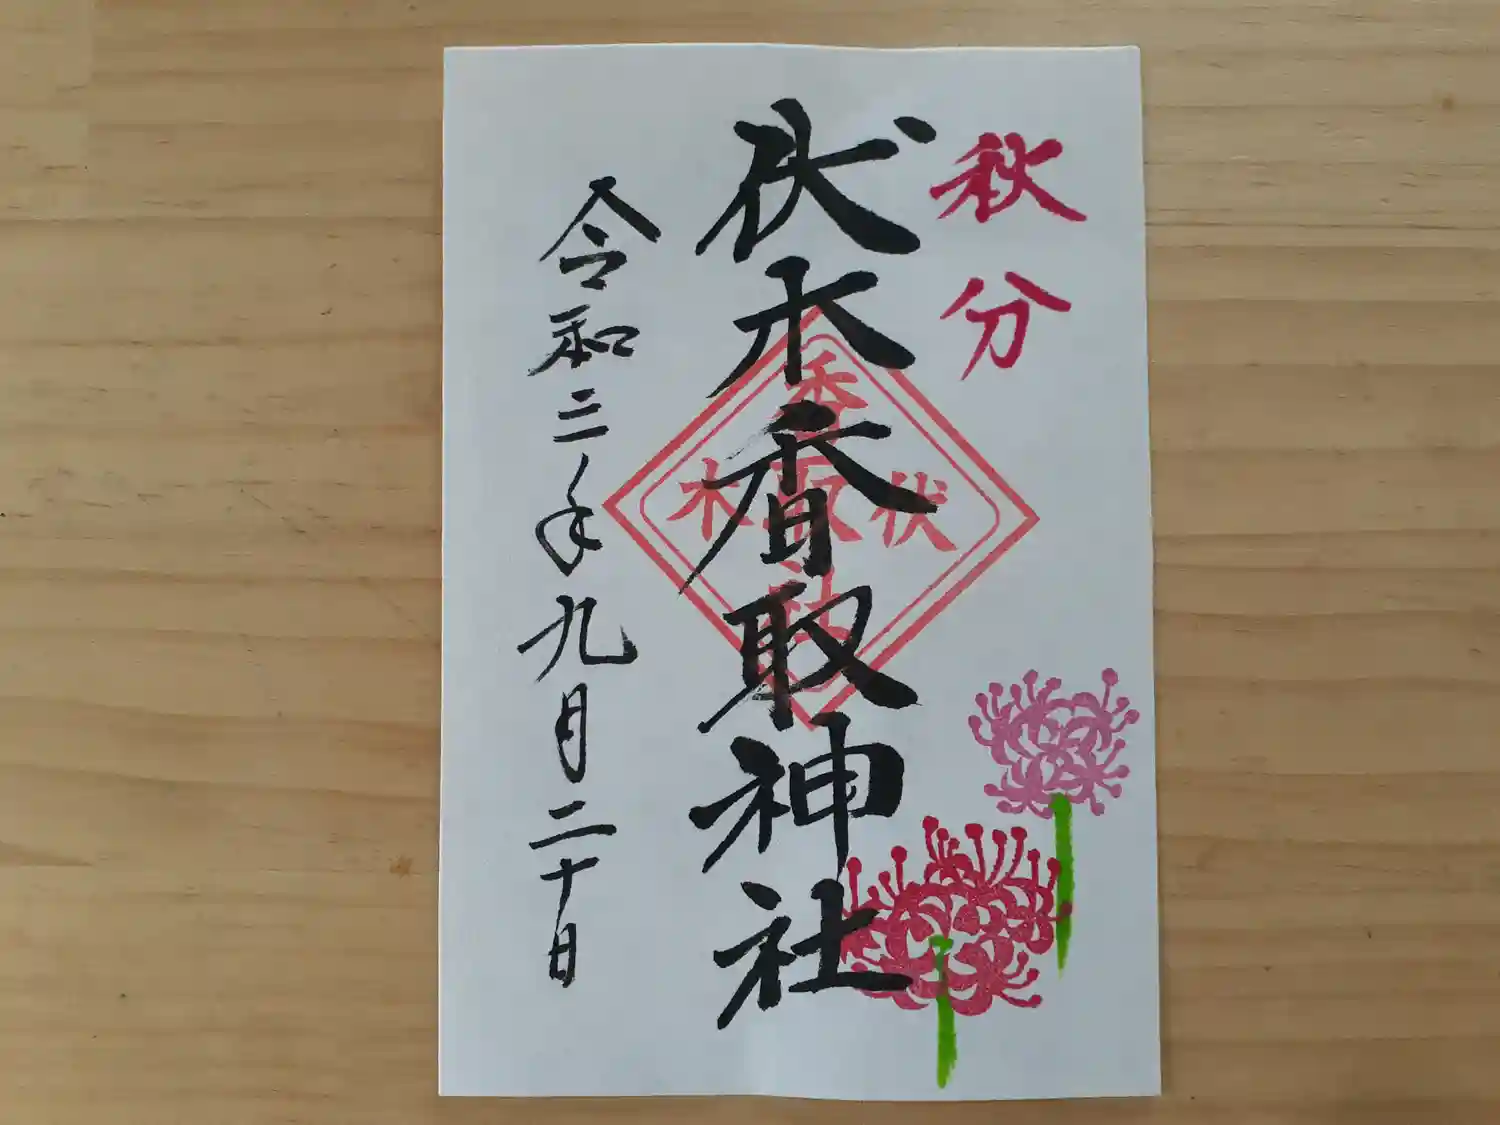 秋分
伏木香取神社
香取社
伏木
令和二年九月二十日